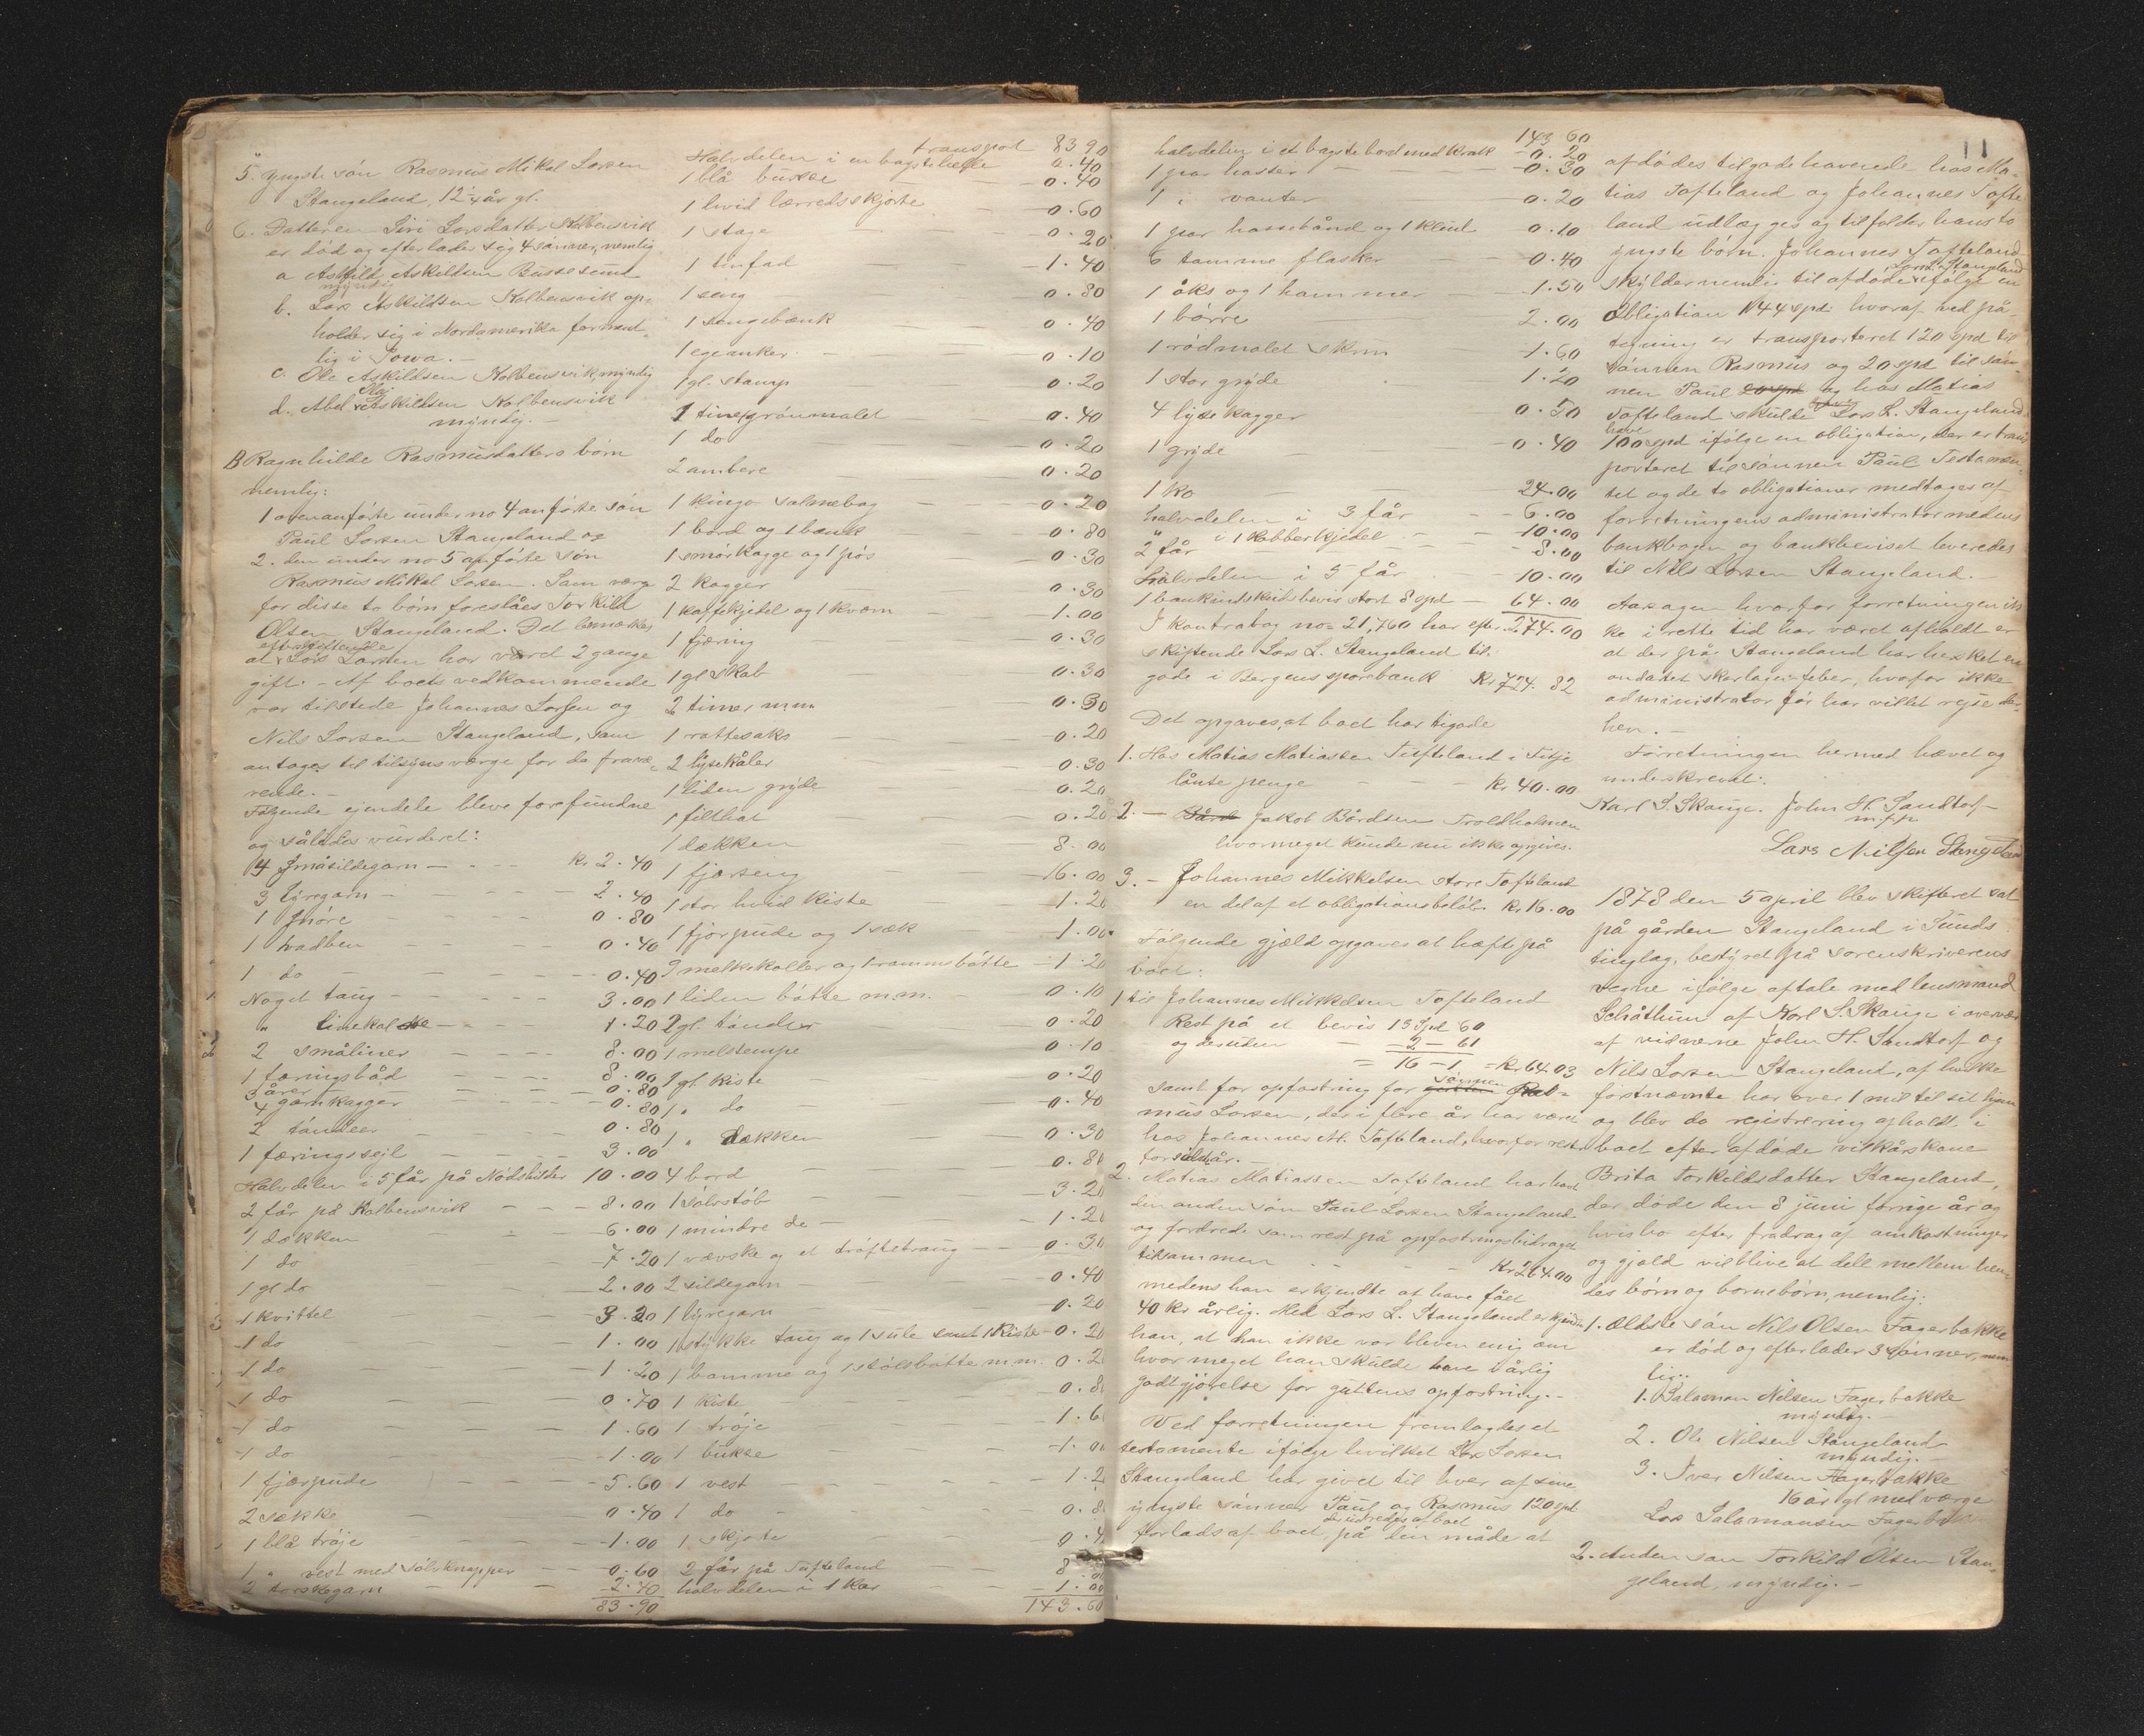 5. yngste søn Rasmus Mikal Larsen
Stangeland, 12 1/4 år gl.
6. Datteren Siri Larsdatter Kolbensvik
er død og efterlader sig 4 sønner, nemlig
a Askild Askildsen Bussesund
myndig
b. Lars Askildsen Kolbensvik op-
holder sig i Nordamerika forment-
lig i Iowa. -
c. Ole Askildsen Kolbensvik, myndig
d. Abel Askildsen Kolbensvik
myndig. -
B Ragnhilde Rasmusdatters børn
nemlig:
1 ovenanførte under no 4 anførte søn
Paul Larsen Stangeland og
2. den under no 5 anførte søn
Rasmus Mikal Larsen. Som værge
for disse to børn foreslåes Torkild
Olsen Stangeland. Det bemærkes
efterskiftende
at Lars Larsen har været 2 gange
gift. - Af boets vedkommende
var tilstede Johannes Larsen og
Nils Larsen Stangeland, som
antages til tilsynsværge for de fravæ-
rende. -
Følgende ejendele bleve forefundne
og således vurderet:
4 Småsildegarn - kr 2.40
3 lyregarn - 2.40
1 Snøre 0.80
1 vadben 0.40
1 do 0.40
Noget taug 3.00
" linekalke 1.20
2 småliner 8.00
1 færingsbåd 8.00
3 årer 0.80
4 garnkagger 0.80
2 tønder 0.80
1 færingssejl 3.00
Halvdelen i 5 får på Nodsbilder 10.00
2 får på Kolbensvik 8.00
1 dækken 6.00
1 do 7.20
1 gl do 2.00
1 kvittel 3.20
1 do 1.00
1 do 1.20
1 do 0.70
1 do 1.60
1 do 1.00
1 fjærpude 5.60
2 sække 0.40
1 blå trøje 1.00
1 " vest med sølvknapper 0.60
2 torskegarn 2.40
83.90
transport 83 90
Halvdelen i en bagstehelle 0.40
1 blå bukse 0.40
1 hvid lærredsskjorte 0.60
1 stage 0.20
1 tinfad 1.40
1 seng 0.80
1 sengebænk 0.40
1 egeanker 0.10
1 gl. stamp 0.20
1 tine grønmalet 0.40
1 do 0.20
2 ambere 0.20
1 kingo salmebog 0.20
1 bord og 1 bænk 0.80
1 smørkagge og 1 pøs 0.30
2 kagger 0.30
1 kaffekjedel og 1 kværn 1.00
1 fjæring 0.30
1 gl skab 0.30
2 tiner m.m. 0.30
1 rottesaks 0.20
2 lysekåler 0.30
1 liden gryde 0.20
1 filthat 0.20
1 dækken 8.00
1 fjørseng 16.00
1 stor hvid kiste 1.20
1 fjørpude og 1 sæk 1.00
9 melkekoller og 1 rammebøtte 1.20
1 liden bøtte m.m. 0.10
2 gl. tønder 0.20
1 melstempe 0.10
1 gl. kiste 0.20
1 " do 0.40
1 " dækken 0.30
4 bord 0.80
1 sølvstøb 3.20
1 mindre do 1.20
1 vævske og et drøftetraug 0.30
2 sildegarn 0.40
1 lyregarn 0.20
1 stykke taug og 1 sule samt 1 kiste 0.20
1 bomme og 1 stølsbøtte m.m. 0.2
1 kiste 0.8
1 trøje 1.6
1 bukse 1.00
1 vest 1.2
1 do 0.8
1 skjorte 0.4
2 får på Tufteland 8
halvdelen i 1 kar 1.00
143.60
143 60
halvdelen i et bagstebord med krak 0.20
1 par hasser 0.30
1 " vanter 0.20
1 par hassebånd og 1 klud 0.10
6 tomme flasker 0.40
1 øks og 1 hammer 1.50
1 børre 2.00
1 rødmalet skrin 1.60
1 stor gryde 1.20
4 lysekagger 0.50
1 gryde 0.40
1 ko 24.00
halvdelen i 3 får 6.00
" i 1 kobberkjedel 10.00
2 får 8.00
Halvdelen i 5 får 10.00
1 bankindskudsbevis stort 8 spd 64.00
274.00
I kontrabog no 21,760 har efter-
skiftende Lars L. Stangeland til-
gode i Bergens sparebank Kr 724.82
Det opgaves, at boet har tilgode
1. Hos Matias Matiassen Tufteland i Fitje
lånte penge kr 40.00
2. - Jakob Bårdsen Troldholmen
hvormeget kunde nu ikke opgives.
3. - Johannes Mikkelsen store Tofteland
en del af et obligationsbeløb Kr 16.00
Følgende gjæld opgaves at hæfte på
boet:
1 til Johannes Mikkelsen Tofteland
Rest på et bevis 13 Spd 60
og desuden 2 - 61
= 16 - 1 = kr 64.03
samt for opfostring for sønnen Ras-
mus Larsen, der i flere år har været
hos Johannes M. Tofteland, hvorfor rest
for sidste år. -
2. Matias Matiassen Tofteland har havt
den anden søn Paul Larsen Stangeland
og fordrede som rest på opfostringsbidraget
tilsammen Kr 264.00
medens han erkjendte at have fået
40 kr årlig. Med Lars L. Stangeland erkjendte
han, at han ikke var bleven enig om
hvor meget han skulde have i årlig
godtgjørelse for guttens opfostring. -
Ved forretningen fremlagdes et
testamente ifølge hvilket Lars Larsen
Stangeland har givet til hver af sine
yngste sønner Paul og Rasmus 120 spd
der udredes af boet
forlods af boet, på den måde at
11
afdødes tilgodehavende hos Ma-
tias Tofteland og Johannes Tofte
land udlægges og tilfalder hans to
yngste børn. Johannes Tofteland
Lars L. Stangeland
skylder nemlig til afdøde ifølge en
Obligation 144 spd. hvoraf ved på-
tegning er transporteret 120 spd til
sønnen Rasmus og 20 spd til søn-
nen Paul og hos Matias
Tofteland skulde Lars L. Stangeland
have
100 spd ifølge en obligation, der er trans
porteret til sønnen Paul. Testamen-
tet og de to obligationer medtages af
forretningens administrator medens
bankbogen og bankbeviset leveredes
til Nils Larsen Stangeland. -
Aarsagen hvorfor forretningen ik-
ke i rette tid har været afholdt er
at der på Stangeland har hersket en
ondartet skarlagensfeber, hvorfor ikke
administrator før har villet rejse der-
hen. -
Forretningen hermed hævet og
underskrevet:
Karl S. Skauge. John H. Sandtorf
m.f.p
Lars Nilsen Stangeland
1878 den 5 april blev skifteret sat
på gården Stangeland i Sunds
tinglag, bestyret på sorenskriverens
vegne ifølge aftale med lensmand
Schåthun af Karl S. Skauge i overvær
af vidnerne John H. Sandtorf og
Nils Larsen Stangeland, af hvilke
førstnævnte har over 1 mil til sit hjem
og blev da registrering afholdt i
boet efter afdøde vilkårskone
Brita Torkildsdatter Stangeland,
der døde den 8 juni forrige år og
hvis bo efter fradrag af omkostninger
og gjæld vil blive at dele mellem hen-
des børn og børnebørn, nemlig:
1. ældste søn Nils Olsen Fagerbakke
er død og efterlader 3 sønner, nem
lig:
1. Salamon Nilsen Fagerbakke
myndig. -
2. Ole Nilsen Stangeland
myndig. -
3. Iver Nilsen Fagerbakke
16 år gl med værge
Lars Salamonsen Fagerbakke
2. Anden søn Torkild Olsen Stan-
geland, myndig. -